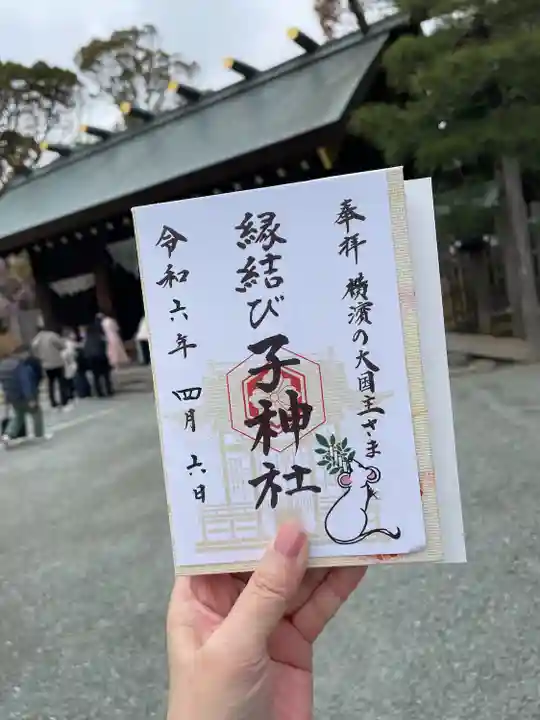 奉拝 横濱の大国主さま
縁結び子神社
令和六年 四月 六日